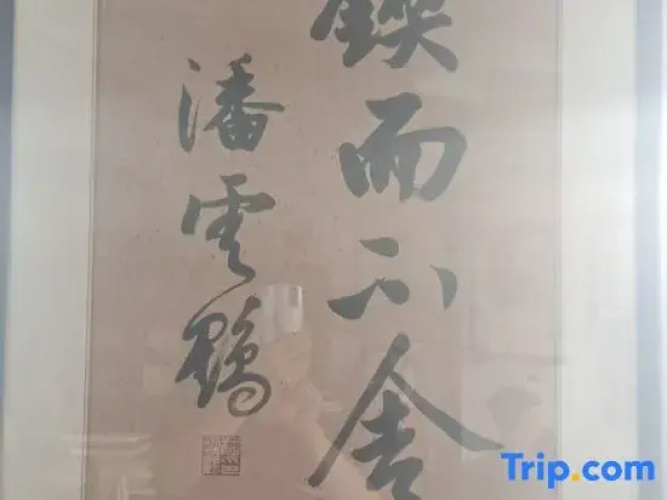 鍥而不舍
潘云鶴
Trip.com